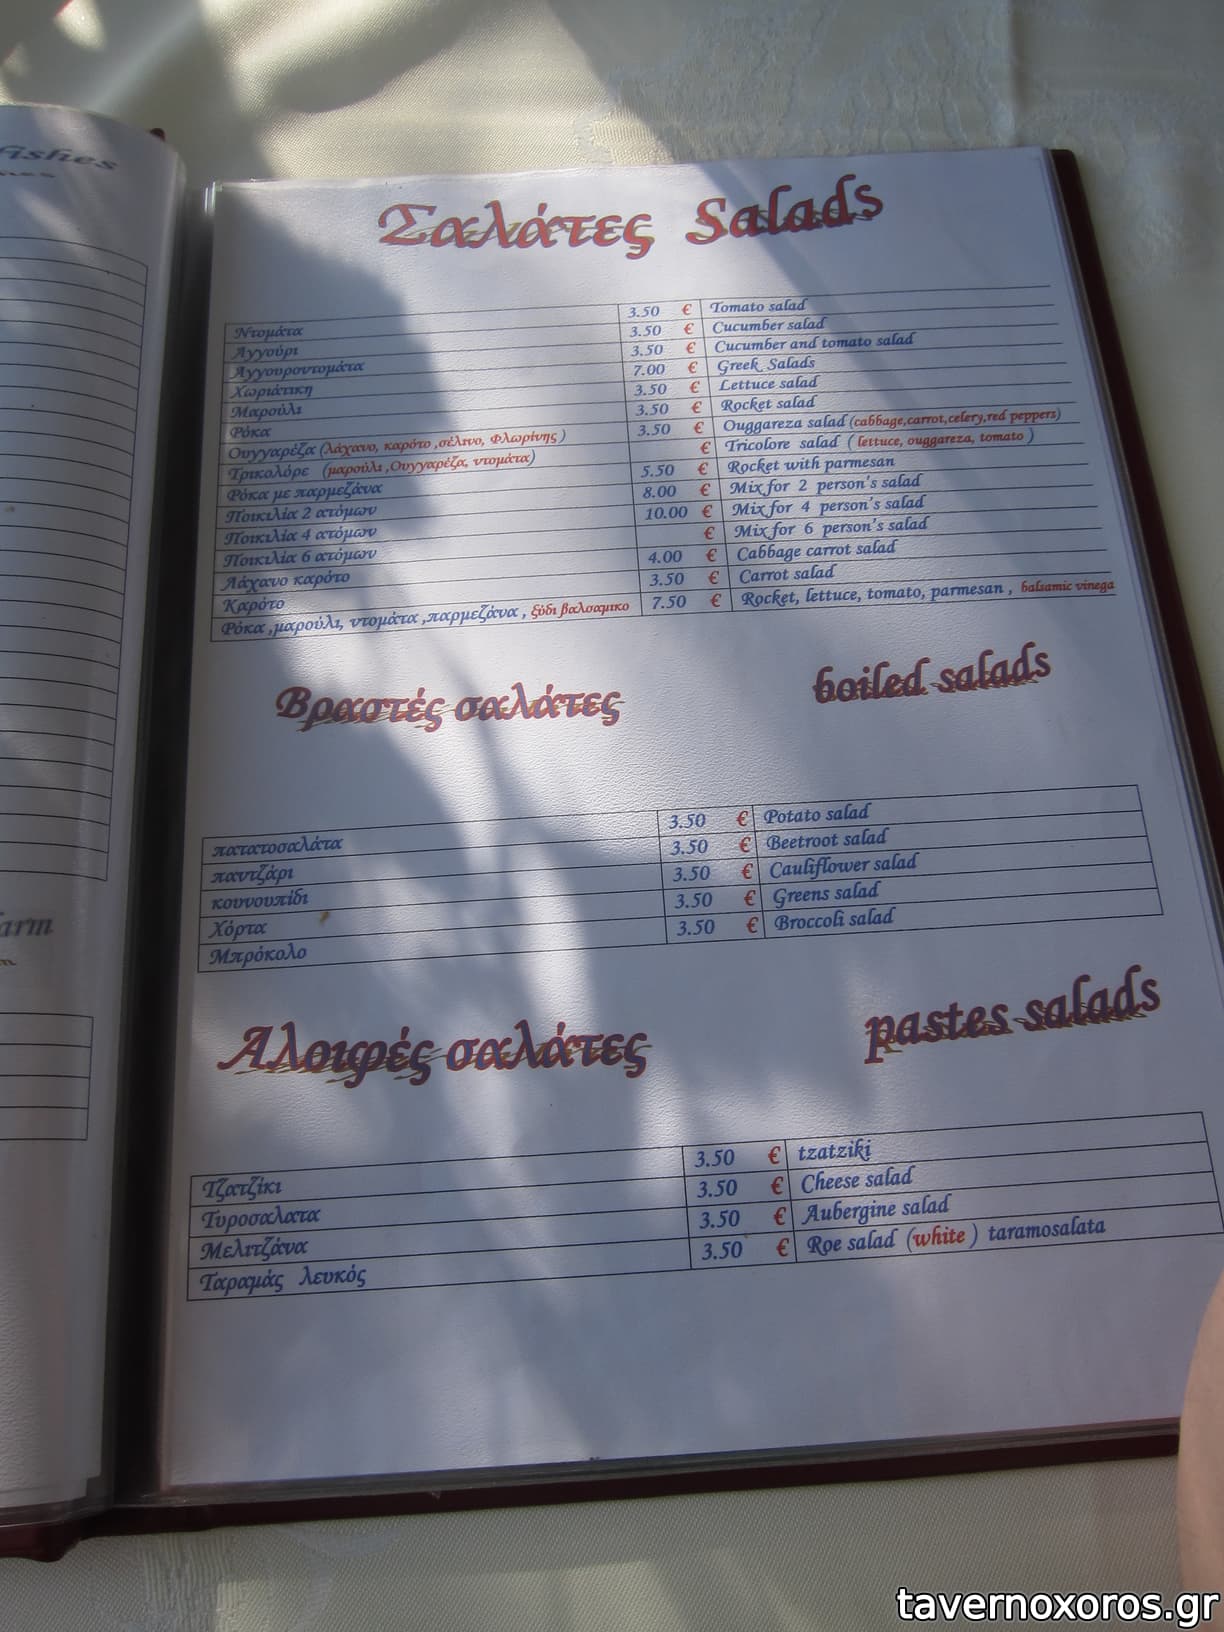 fishes
Σαλάτες Salads
Ντομάτα 3.50 € Tomato salad
Αγγούρι 3.50 € Cucumber salad
Αγγουροντομάτα 3.50 € Cucumber and tomato salad
Χωριάτικη 7.00 € Greek Salads
Μαρούλι 3.50 € Lettuce salad
Ρόκα 3.50 € Rocket salad
Ουγγαρέζα (λάχανο, καρότο ,σέλινο, Φλωρίνης ) 3.50 € Ouggareza salad (cabbage,carrot,celery,red peppers)
Τρικολόρε (μαρούλι ,Ουγγαρέζα, ντομάτα) € Tricolore salad ( lettuce, ouggareza, tomato )
Ρόκα με παρμεζάνα 5.50 € Rocket with parmesan
Ποικιλία 2 ατόμων 8.00 € Mix for 2 person's salad
Ποικιλία 4 ατόμων 10.00 € Mix for 4 person's salad
Ποικιλία 6 ατόμων € Mix for 6 person's salad
Λάχανο καρότο 4.00 € Cabbage carrot salad
Καρότο 3.50 € Carrot salad
Ρόκα ,μαρούλι, ντομάτα ,παρμεζάνα , ξύδι βαλσαμικο 7.50 € Rocket, lettuce, tomato, parmesan , balsamic vinega
Βραστές σαλάτες boiled salads
πατατοσαλάτα 3.50 € Potato salad
παντζάρι 3.50 € Beetroot salad
κουνουπίδι 3.50 € Cauliflower salad
Χόρτα 3.50 € Greens salad
Μπρόκολο 3.50 € Broccoli salad
arm
Αλοιφές σαλάτες pastes salads
Τζατζίκι 3.50 € tzatziki
Τυροσαλατα 3.50 € Cheese salad
Μελιτζάνα 3.50 € Aubergine salad
Ταραμάς λευκός 3.50 € Roe salad (white ) taramosalata
tavernoxoros.gr